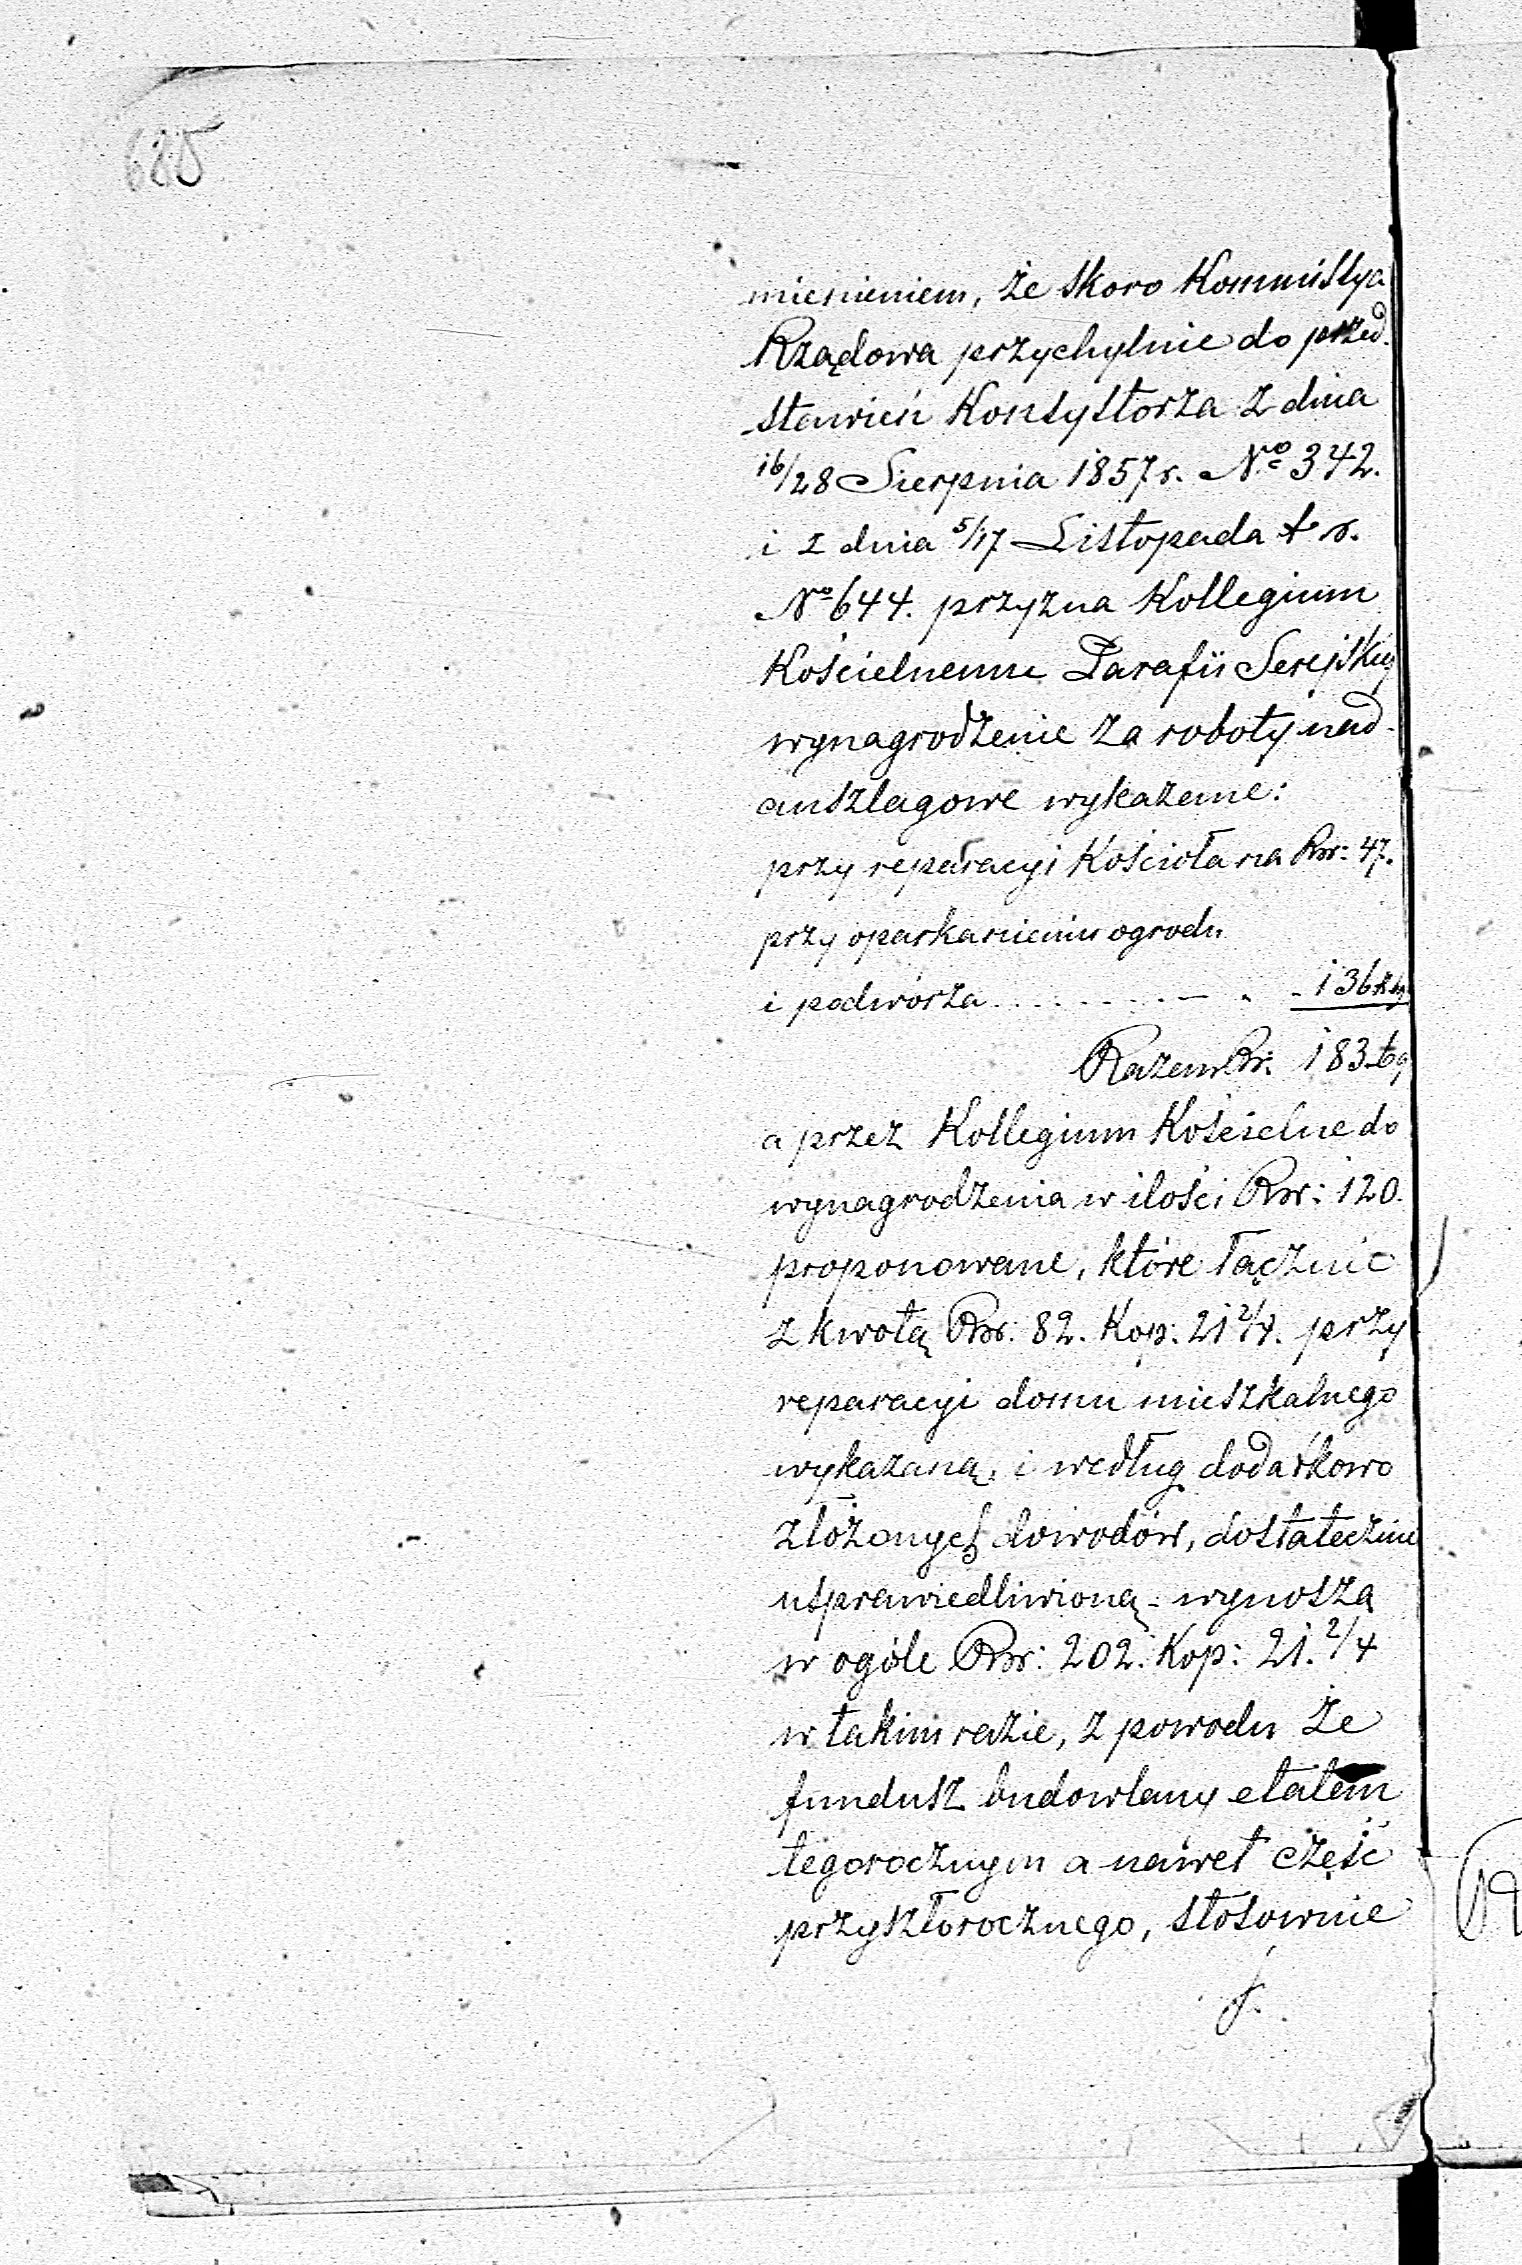 685
mienieniem, że skoro Kommissya
Rządowa przychylnie do przed-
stawień Konsystorza z dnia
16/28 Sierpnia 1857 r. No 342.
i z dnia 5/17 Listopada t. r.
No 644. przyzna Kollegium
Kościelnemu Parafii Serejskiej
wynagrodzenie za roboty nad-
anszlagowe wykazane:
przy reparacyi Kościoła na Rsr: 47.
przy oparkanieniu ogrodu
i podwórza . . . . . . . . . - 136
Razem Rsr: 183
a przez Kollegium Kościelne do
wynagrodzenia w ilości Rsr: 120.
proponowane, które łącznie
z kwotą Rsr: 82. Kop: 21 2/4. przy
reparacyi domu mieszkalnego
wykazaną, i według dodatkowo
złożonych dowodów, dostatecznie
usprawiedliwioną - wynoszą
w ogóle Rsr: 202. Kop: 21. 2/4
w takim razie, z powodu że
fundusz budowlany etatem
tegorocznym a nawet część
przyszłorocznego, stosownie